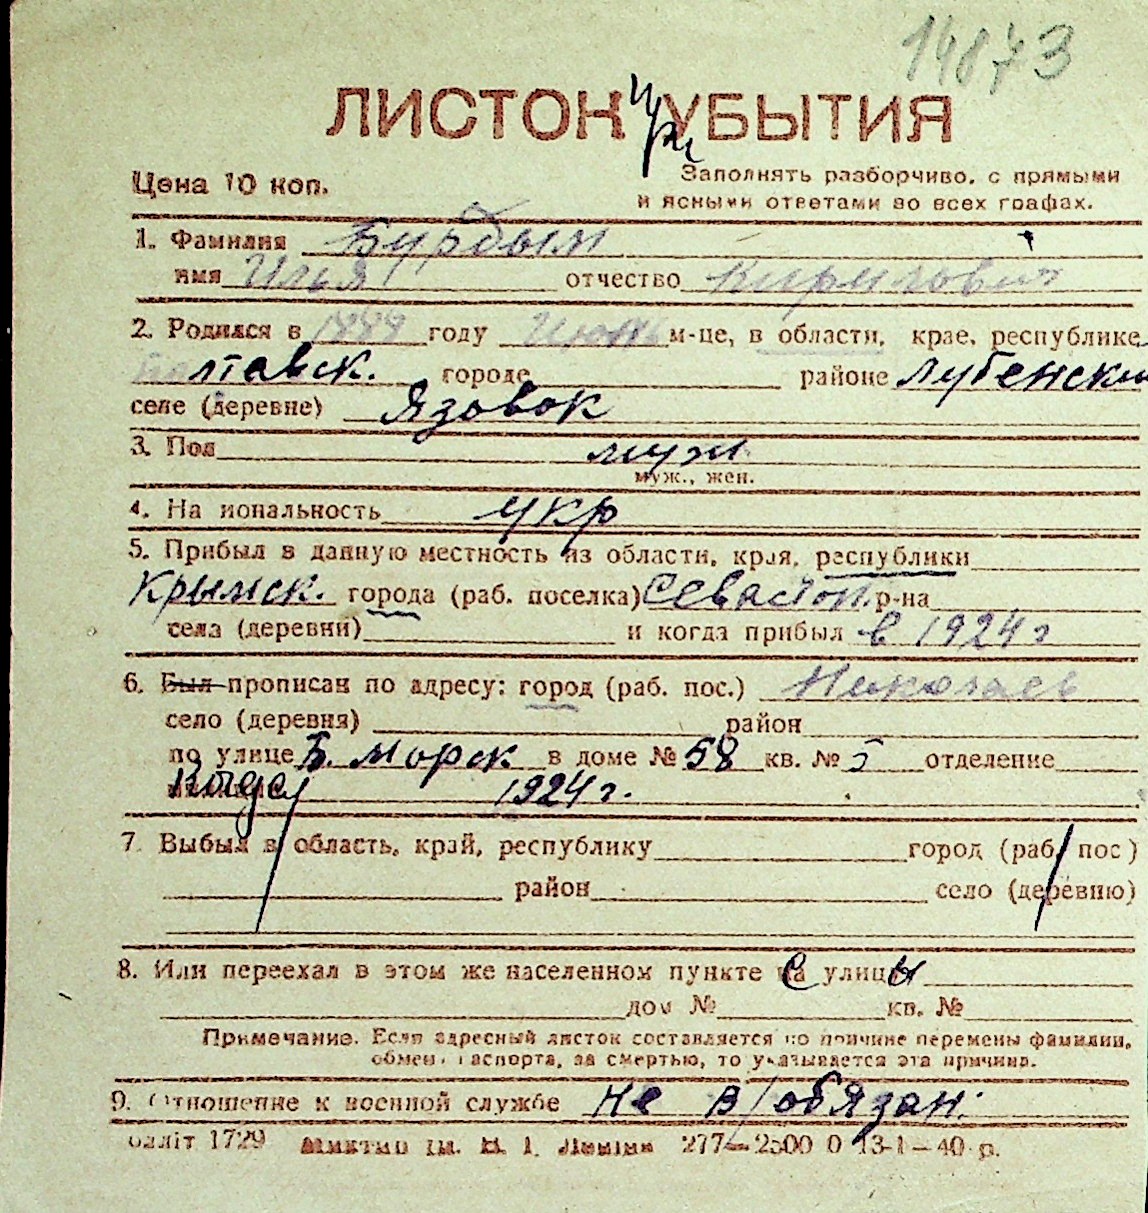 14873
ЛИСТОК при УБЫТИЯ
Цена 10 коп.
Заполнять разборчиво, с прямыми
и ясными ответами во всех графах.
1. Фамилия Бурдым
имя Илья отчество Кирилович
2. Родился в 1889 году Июнь м-це, в области, крае, республике
Полтавск. городе районе Лубенски
селе (деревне) Язовок
3. Пол муж
муж., жен.
4. На иональность укр
5. Прибыл в данную местность из области, края, республики
Крымск. города (раб. поселка) Севастоп. р-на
села (деревни) и когда прибыл в 1924 г
6. Был прописан по адресу: город (раб. пос.) Николаев
село (деревня) район
по улице Б. Морск в доме № 58 кв. № 5 отделение
Когда 1924 г.
7. Выбыл в область, край, республику город (раб. пос)
район село (деревню)
8. Или переехал в этом же населенном пункте с улицы
дом № кв. №
Примечание. Если адресный листок составляется по причине перемены фамилии,
обмен паспорта, за смертью, то указывается эта причина.
9. Отношение к военной службе не в/обязан.
облліт 1729 ім. В. І. Леніна 277—2500 0 13-1—40 р.